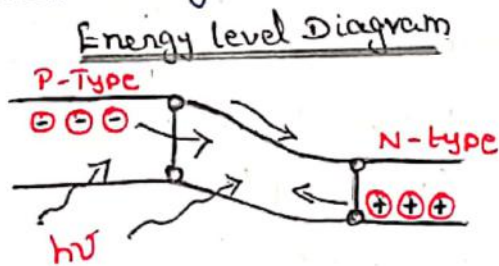 Energy level Diagram
P-Type
⊖ ⊖ ⊖
N-type
⊕ ⊕ ⊕
hν